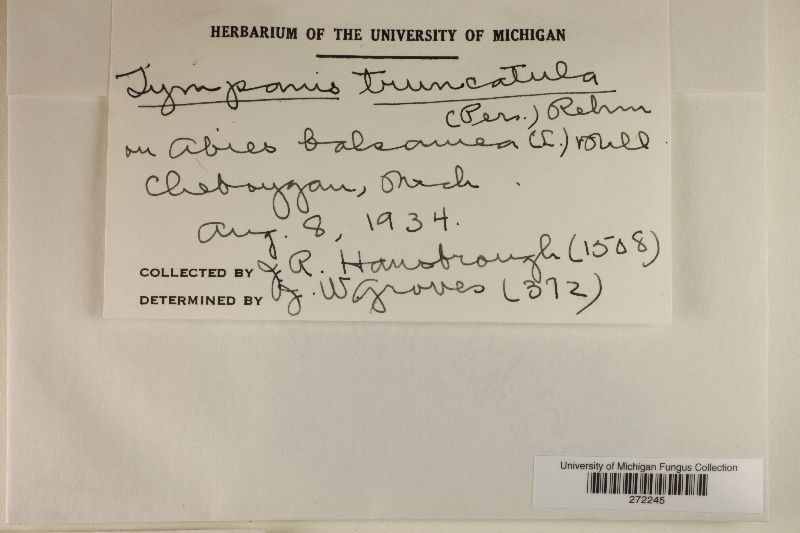 HERBARIUM OF THE UNIVERSITY OF MICHIGAN
Tympanis truncatula
(Pers.) Rehm
on Abies balsamea (L.) Mill
Cheboygan, Mich.
Aug. 8, 1934.
COLLECTED BY J. R. Hansbrough (1508)
DETERMINED BY J. W Groves (372)
University of Michigan Fungus Collection
272245